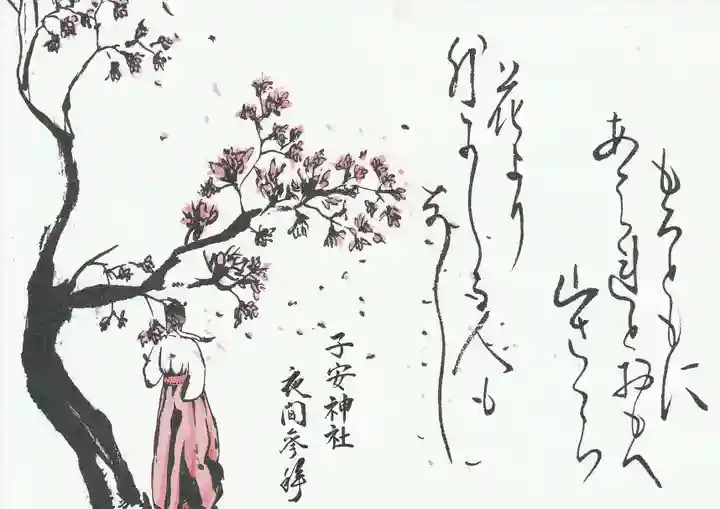 もろともに
あはれとおもへ
山さくら
花より
外にしる人も
なし
子安神社
夜間參拝